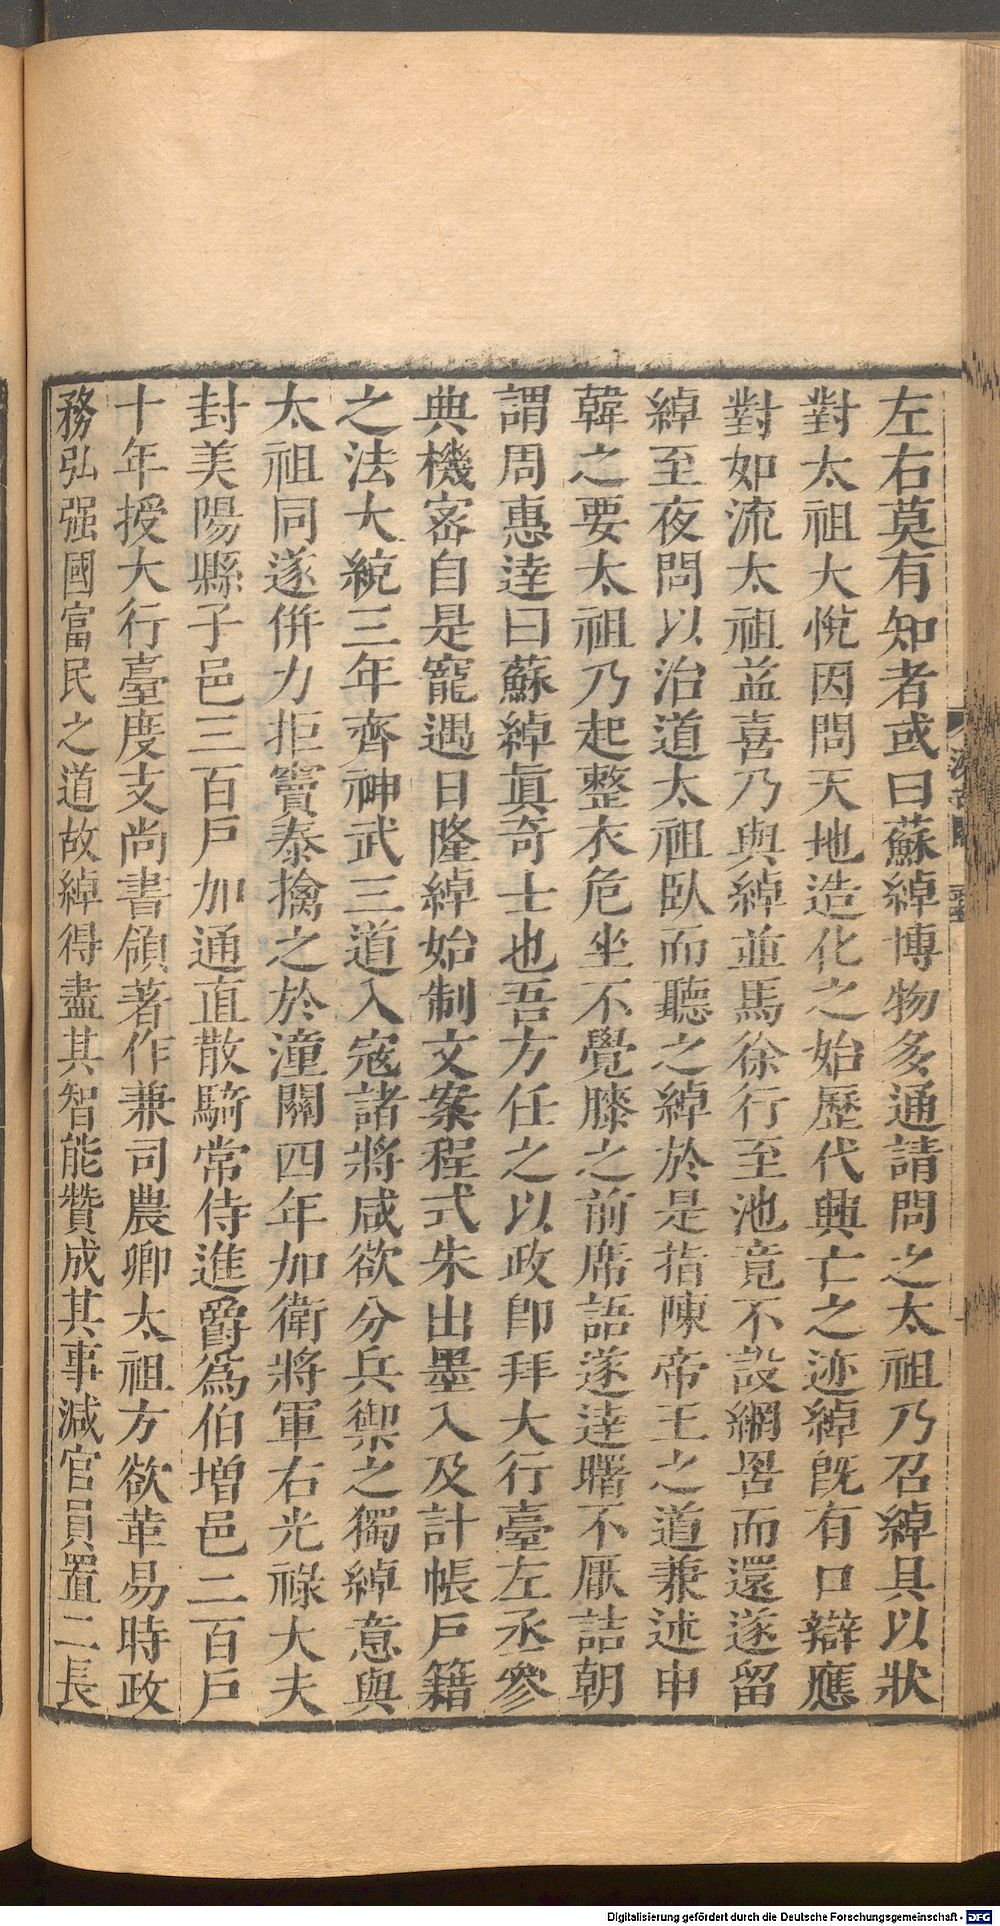 左右莫有知者或曰蘇綽博物多通請問之太祖乃召綽具以狀
對太祖大悅因問天地造化之始歷代興亡之迹綽旣有口辯應
對如流太祖益喜乃與綽並馬徐行至池竟不設網罟而還遂留
綽至夜問以治道太祖臥而聽之綽於是指陳帝王之道兼述申
韓之要太祖乃起整衣危坐不覺膝之前席語遂達曙不厭詰朝
謂周惠達曰蘇綽眞奇士也吾方任之以政卽拜大行臺左丞參
典機密自是寵遇日隆綽始制文案程式朱出墨入及計帳戶籍
之法大統三年齊神武三道入寇諸將咸欲分兵禦之獨綽意與
太祖同遂併力拒竇泰擒之於潼關四年加衛將軍右光祿大夫
封美陽縣子邑三百戶加通直散騎常侍進爵爲伯增邑二百戶
十年授大行臺度支尚書領著作兼司農卿太祖方欲革易時政
務弘强國富民之道故綽得盡其智能贊成其事減官員置二長
Digitalisierung gefördert durch die Deutsche Forschungsgemeinschaft - DFG